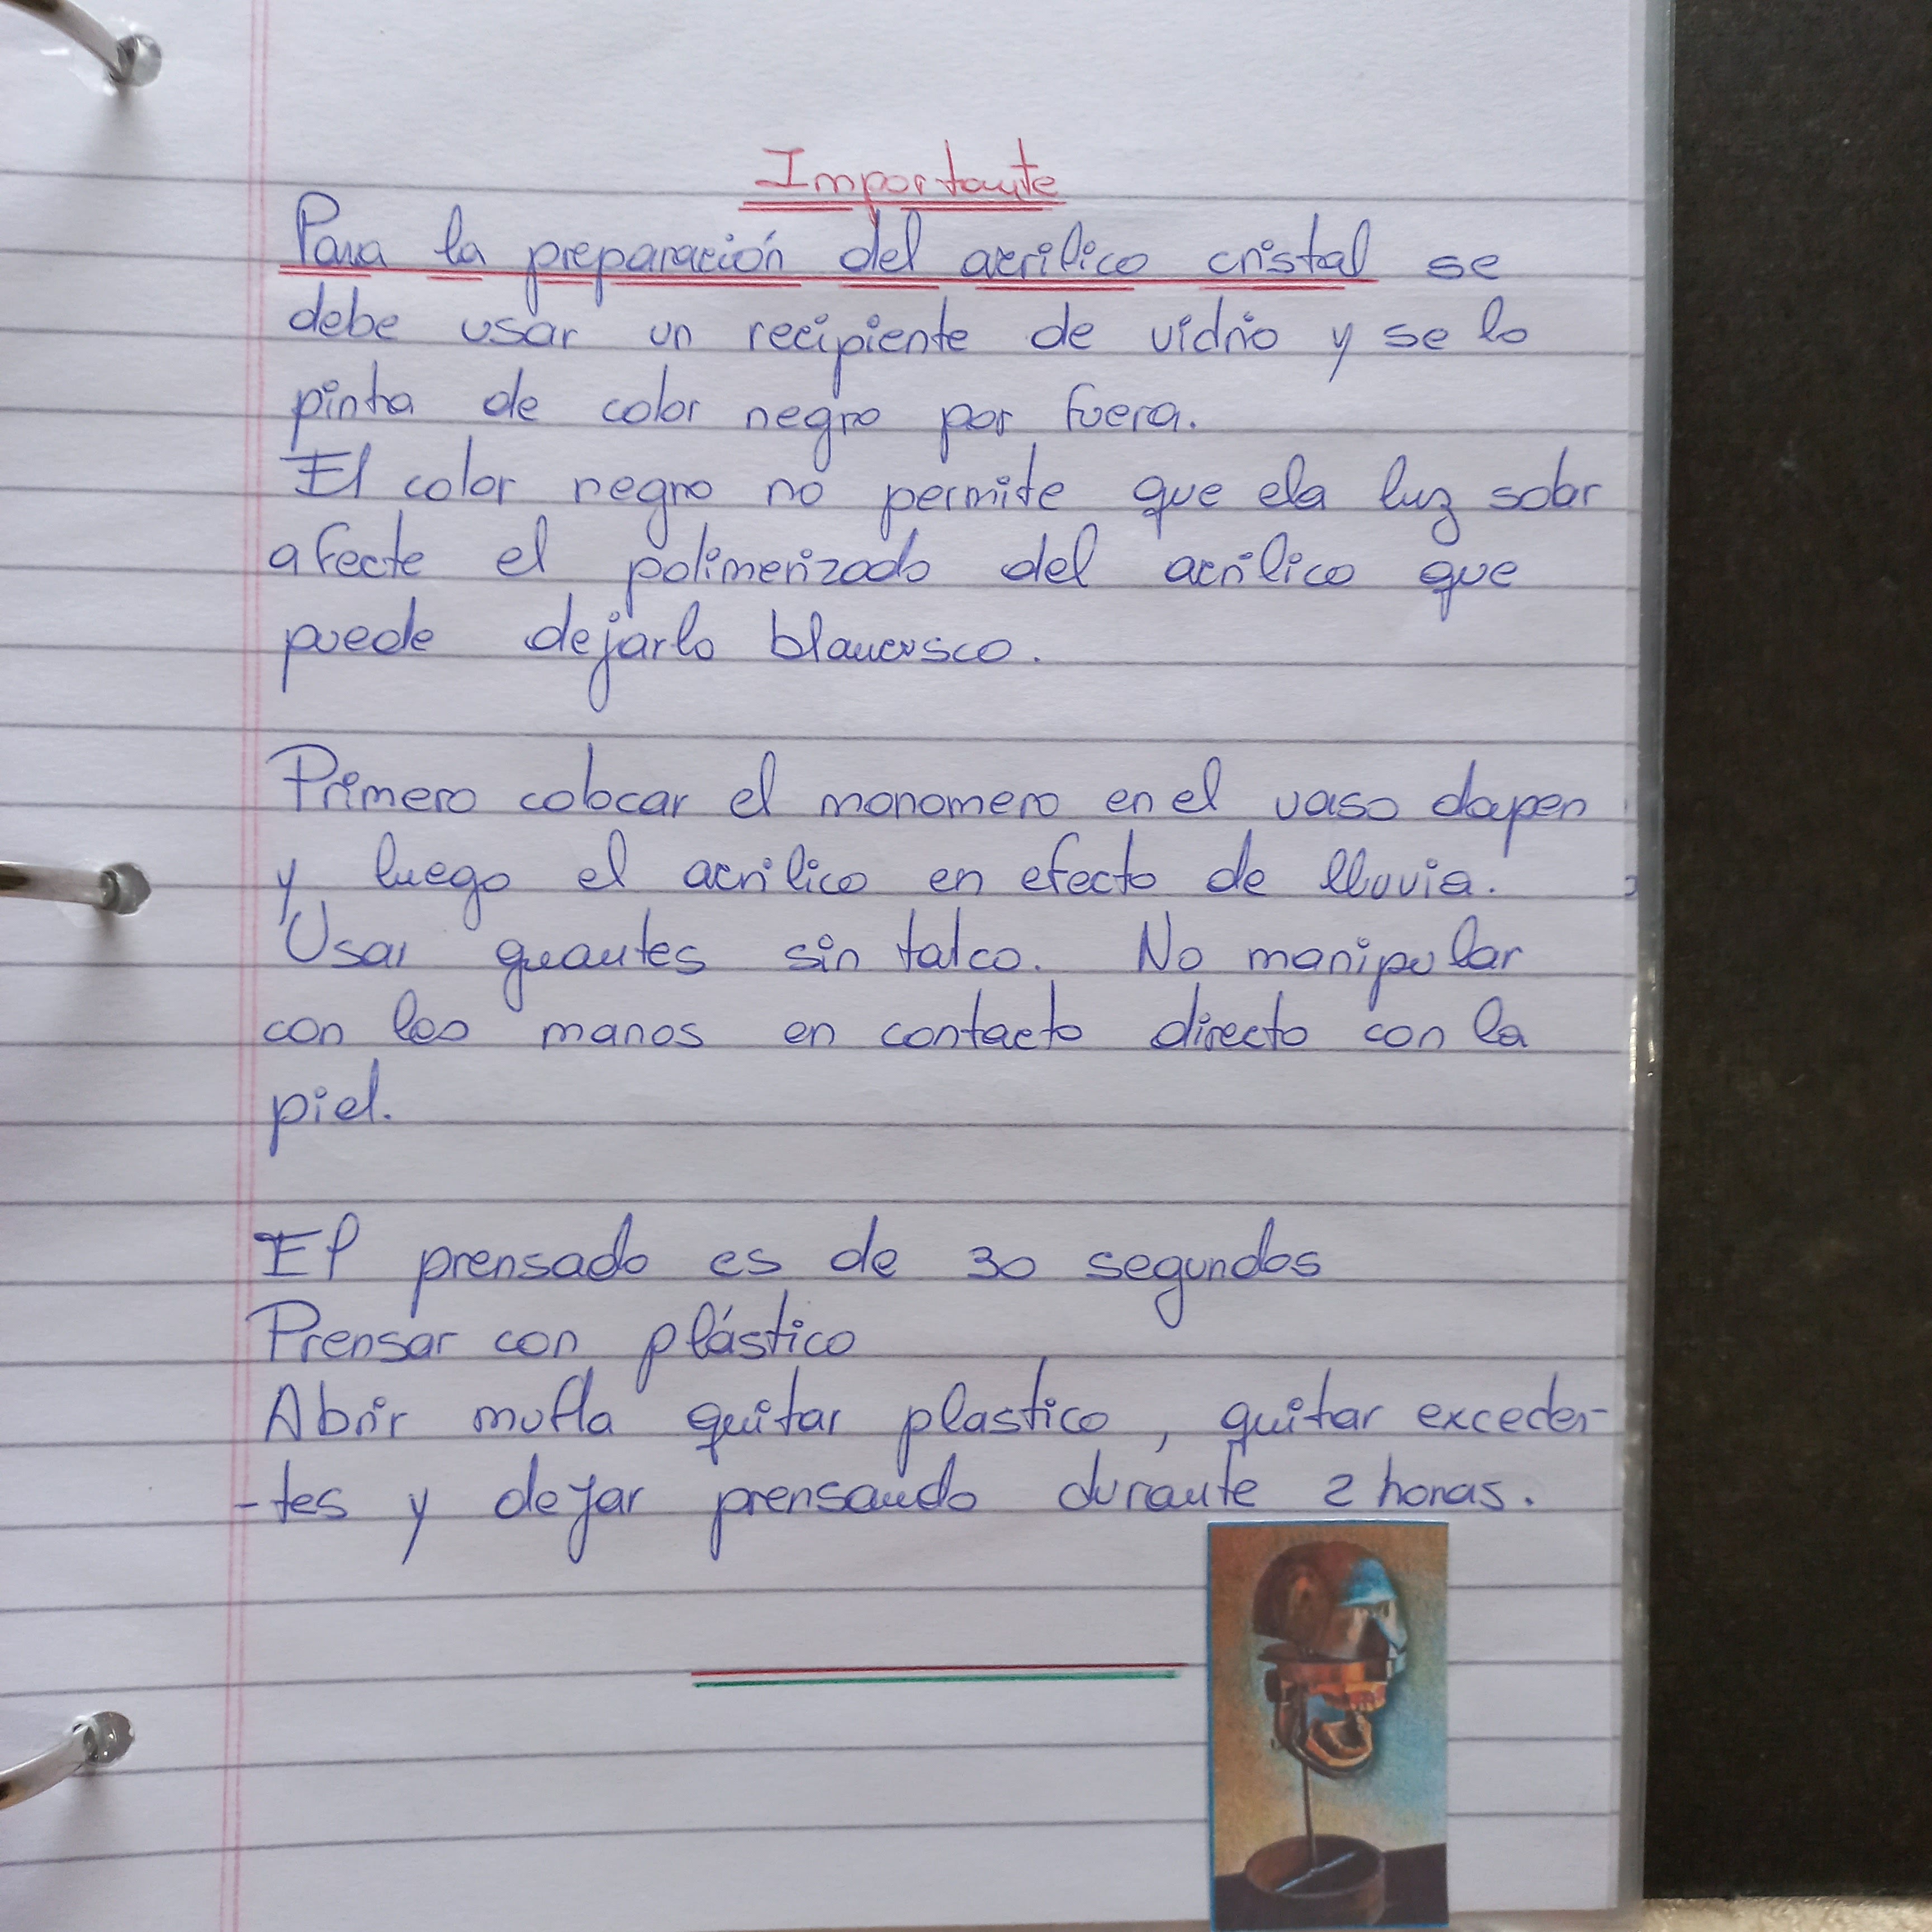 Importante
Para la preparación del acrilico cristal se
debe usar un recipiente de vidrio y se lo
pinta de color negro por fuera.
El color negro no permite que ela luz solar
afecte el polimerizado del acrilico que
puede dejarlo blancusco.
Primero colocar el monomero en el vaso dapen
y luego el acrilico en efecto de lluvia.
Usar guantes sin talco. No manipular
con las manos en contacto directo con la
piel.
El prensado es de 30 segundos
Prensar con plástico
Abrir mufla quitar plastico, quitar exceden-
-tes y dejar prensando durante 2 horas.